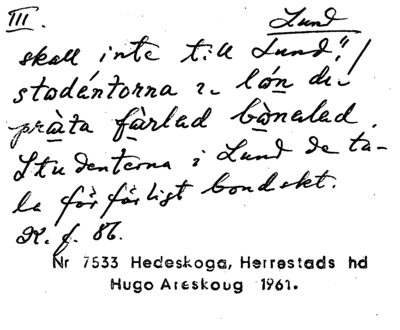 III. Lund
skall inte till Lund."/
stodéntorna i lón di
prāta fàrlad bònalad.
Studenterna i Lund de ta-
la förfärligt bondskt.
K. f. 86.
Nr 7533 Hedeskoga, Herrestads hd
Hugo Areskoug 1961.